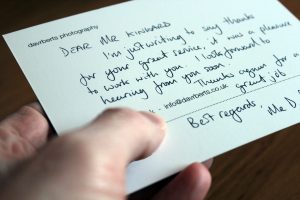 dawberts photography
DEAR MR KINNAIRD
I'm just writing to say thanks
for your great service, it was a pleasure
to work with you. I look forward to
hearing from you soon!
Thanks again for a
great job
: info@dawberts.co.uk
Best regards,